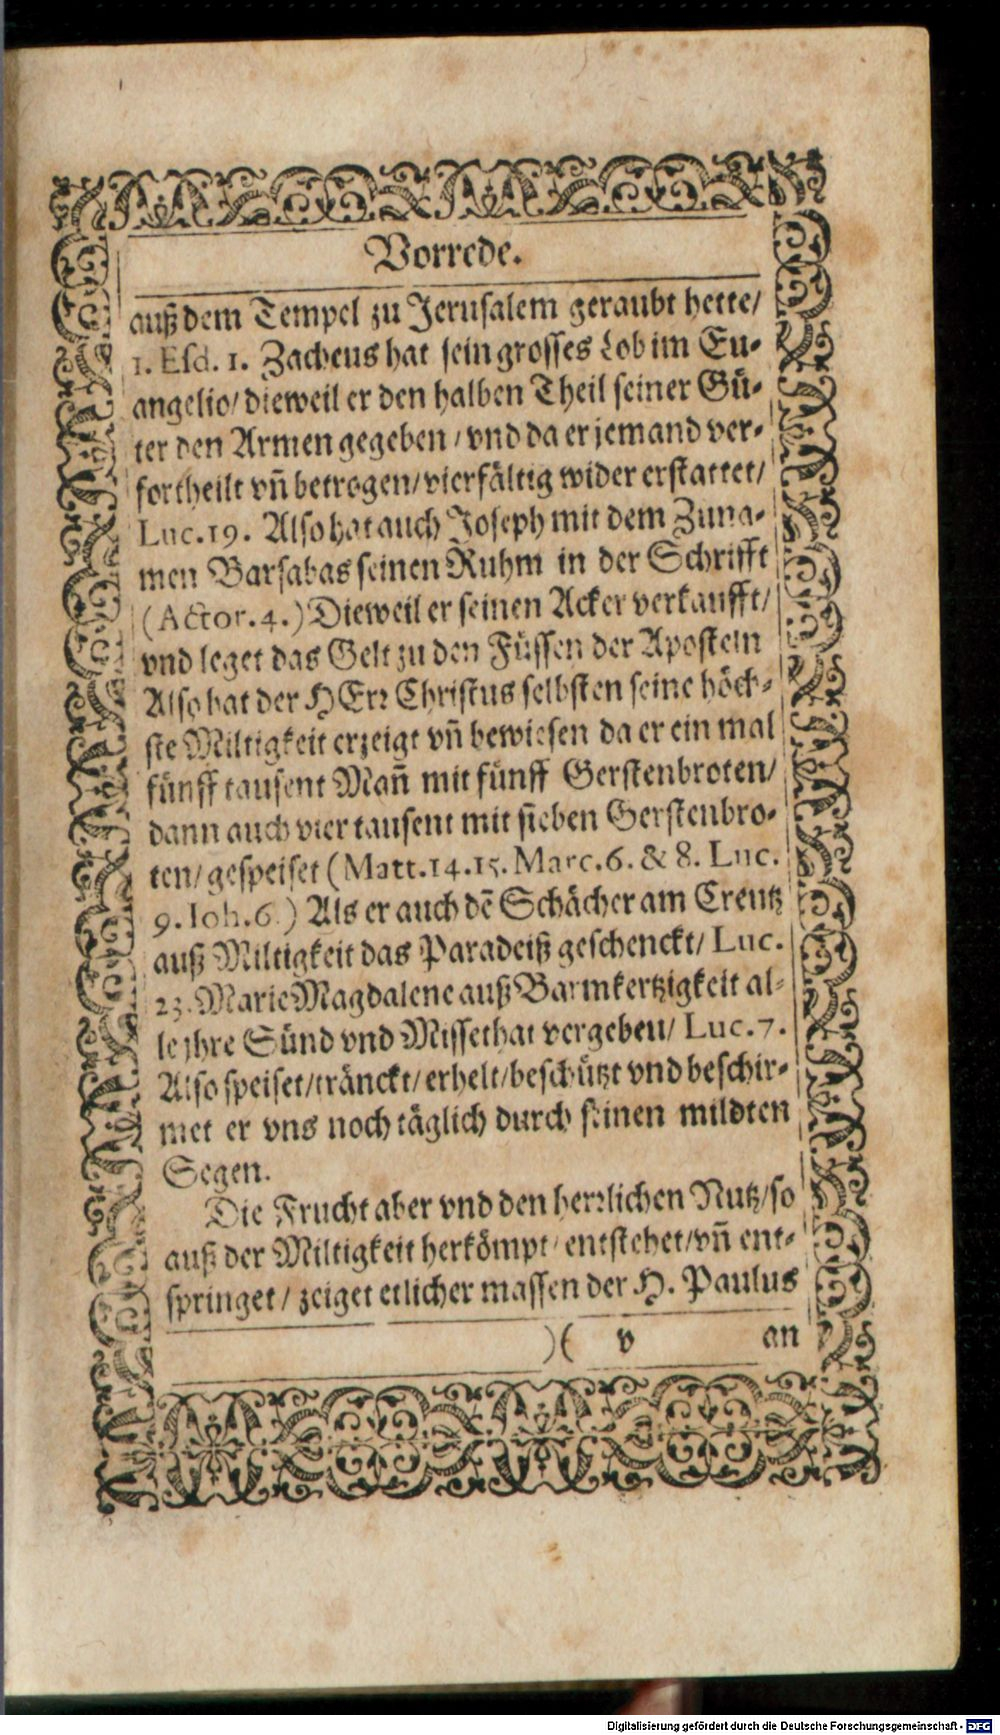 Vorrede.
auß dem Tempel zu Jerusalem geraubt hette/
1. Esd. 1. Zacheus hat sein grosses Lob im Eu-
angelio/ dieweil er den halben Theil seiner Gü-
ter den Armen gegeben / vnd da er jemand ver-
fortheilt vñ betrogen/ vierfältig wider erstattet/
Luc. 19. Also hat auch Joseph mit dem Zuna-
men Barsabas seinen Ruhm in der Schrifft
(Actor. 4.) Dieweil er seinen Acker verkaufft/
vnd leget das Gelt zu den Füssen der Aposteln
Also hat der HErr Christus selbsten seine höch-
ste Miltigkeit erzeigt vñ bewiesen da er ein mal
fünff tausent Mañ mit fünff Gerstenbroten/
dann auch vier tausent mit sieben Gerstenbro-
ten/ gespeiset (Matt. 14. 15. Marc. 6. & 8. Luc.
9. Ioh. 6.) Als er auch dẽ Schächer am Creutz
auß Miltigkeit das Paradeiß geschenckt/ Luc.
23. Marie Magdalene auß Barmkertzigkeit al-
le jhre Sünd vnd Missethat vergeben/ Luc. 7.
Also speiset/ tränckt/ erhelt/ beschützt vnd beschir-
met er vns noch täglich durch seinen mildten
Segen.
Die Frucht aber vnd den herrlichen Nutz/ so
auß der Miltigkeit herkömpt/ entstehet/ vñ ent-
springet / zeiget etlicher massen der H. Paulus
)( v an
Digitalisierung gefördert durch die Deutsche Forschungsgemeinschaft - DFG